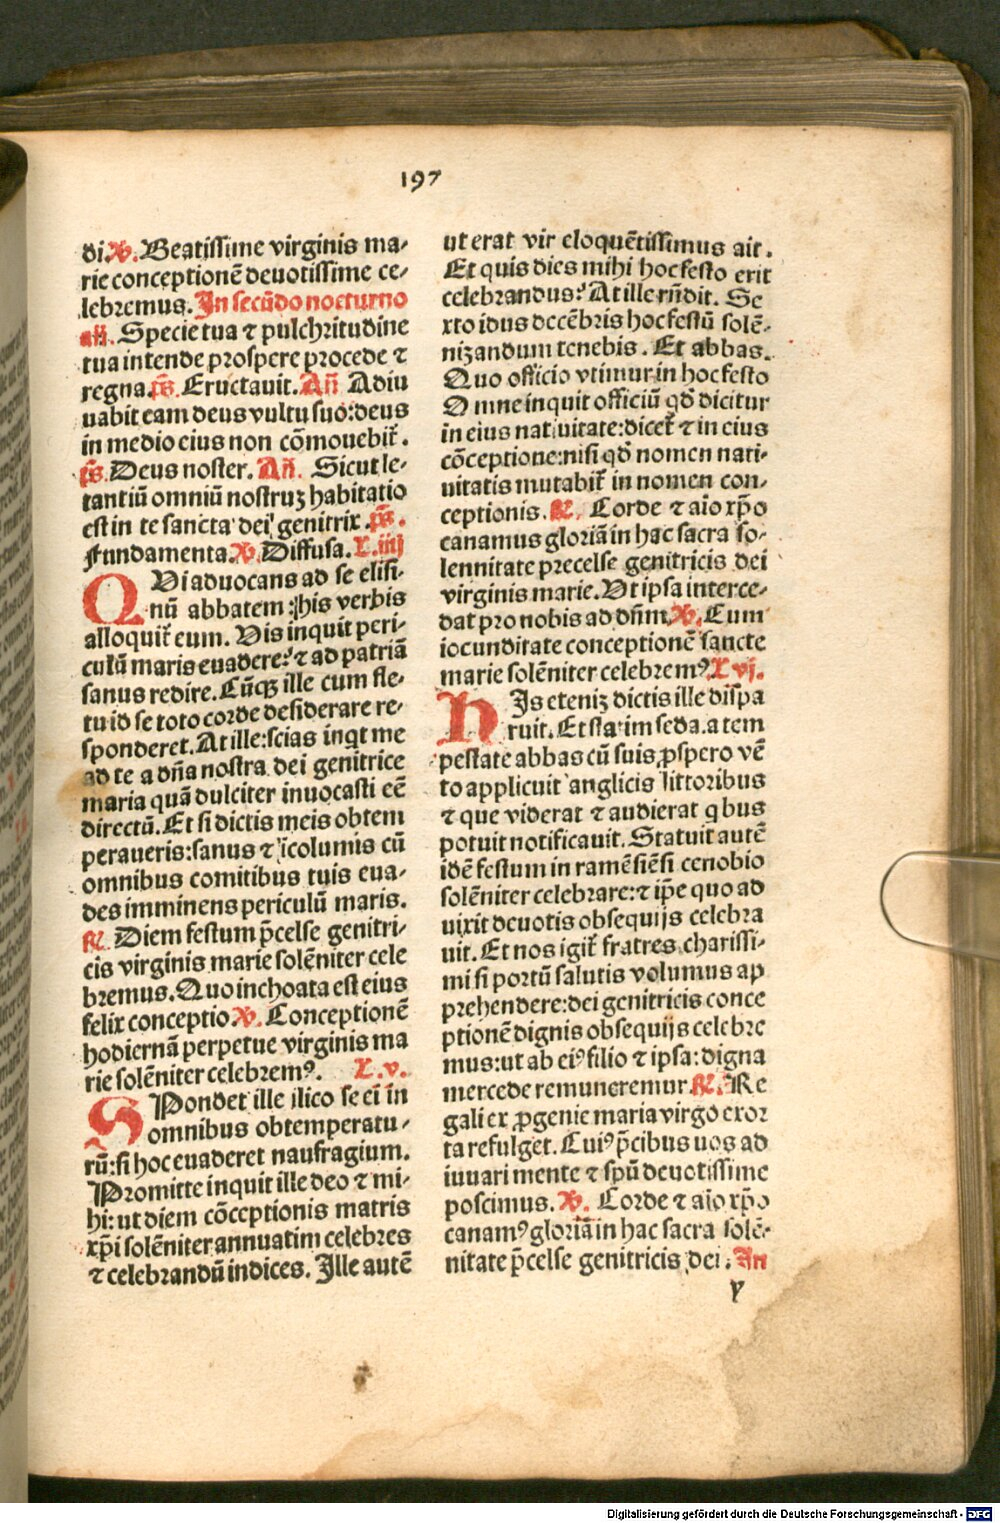 197
di. ℣. Beatissime virginis ma-
rie conceptionē deuotissime ce-
lebremus. In secūdo nocturno
añ. Specie tua ⁊ pulchritudine
tua intende prospere procede ⁊
regna. p̄s. Eructauit. Añ Adiu
uabit eam deus vultu suo: deus
in medio eius non cōmouebit̄.
p̄s. Deus noster. Añ. Sicut le-
tantiū omniū nostruꝫ habitatio
est in te sancta dei genitrix. p̄s.
Fundamenta. ℣. Diffusa. L. iiij
QVi aduocans ad se elisi-
nū abbatem: his verbis
alloquit̄ eum. Vis inquit peri-
culū maris euadere: ⁊ ad patriā
sanus redire. Cūqꝫ ille cum fle-
tu id se toto corde desiderare re-
sponderet. At ille: scias inqt me
ad te a dn̄a nostra dei genitrice
maria quā dulciter inuocasti eē
directū. Et si dictis meis obtem
peraueris: sanus ⁊ īcolumis cū
omnibus comitibus tuis eua-
des imminens periculū maris.
℟. Diem festum p̄celse genitri-
cis virginis marie solēniter cele
bremus. Quo inchoata est eius
felix conceptio ℣. Conceptionē
hodiernā perpetue virginis ma
rie solēniter celebremꝰ. L. v.
SPondet ille ilico se ei in
omnibus obtemperatu-
rū: si hoc euaderet naufragium.
Promitte inquit ille deo ⁊ mi-
hi: ut diem cōceptionis matris
xp̄i solēniter annuatim celebres
⁊ celebrandū indices. Ille autē
ut erat vir eloquētissimus ait.
Et quis dies mihi hoc festo erit
celebrandus: At ille rn̄dit. Se
xto idus decēbris hoc festū solē-
nizandum tenebis. Et abbas.
Quo officio vtimur in hoc festo
Omne inquit officiū qd̄ dicitur
in eius natiuitate: dicet̄ ⁊ in eius
cōceptione: nisi qd̄ nomen nati-
uitatis mutabit̄ in nomen con-
ceptionis. ℟. Corde ⁊ aīo xp̄o
canamus gloriā in hac sacra so-
lennitate precelse genitricis dei
virginis marie. Vt ipsa interce-
dat pro nobis ad dn̄m. ℣. Cum
iocunditate conceptionē sancte
marie solēniter celebremꝰ. L vj.
HJs eteniꝫ dictis ille dispa
ruit. Et statim sedata tem
pestate abbas cū suis ꝓspero vē
to applicuit anglicis littoribus
⁊ que viderat ⁊ audierat qbus
potuit notificauit. Statuit autē
idē festum in ramēsiēsi cenobio
solēniter celebrare: ⁊ ip̄e quo ad
uixit deuotis obsequijs celebra
uit. Et nos igit̄ fratres charissi-
mi si portū salutis volumus ap
prehendere: dei genitricis conce
ptionē dignis obsequijs celebre
mus: ut ab eiꝰ filio ⁊ ipsa: digna
mercede remuneremur. ℟. Re
gali ex ꝓgenie maria virgo exor
ta refulget. Cuiꝰ p̄cibus uos ad
iuuari mente ⁊ spū deuotissime
poscimus. ℣. Corde ⁊ aīo xp̄o
canamꝰ gloriā in hac sacra solē-
nitate p̄celse genitricis dei. In
y
Digitalisierung gefördert durch die Deutsche Forschungsgemeinschaft - DFG